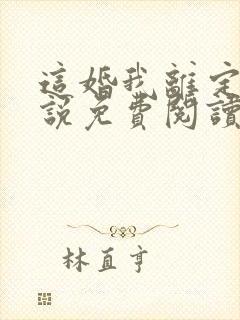 這婚我離定
說免費閱讀
林直亨